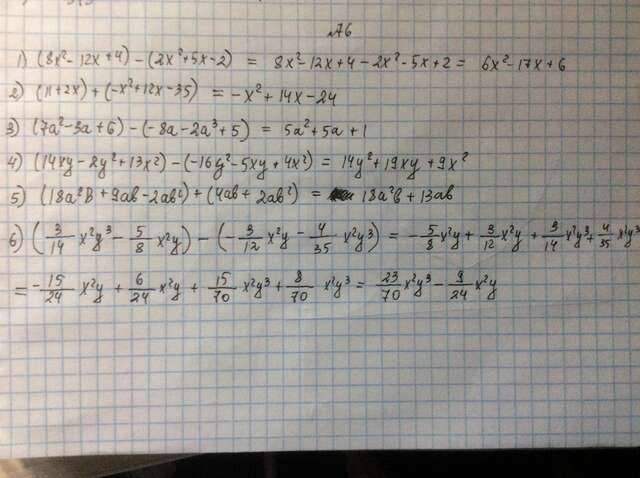 А6
1) (8x²-12x+4)-(2x²+5x-2) = 8x²-12x+4-2x²-5x+2 = 6x²-17x+6
2) (11+2x)+(-x²+12x-35) = -x²+14x-24
3) (7a²-3a+6)-(-8a-2a³+5) = 5a²+5a+1
4) (14xy-2y²+13x²)-(-16y²-5xy+4x²) = 14y²+19xy+9x²
5) (18a²b+9ab-2ab²)+(4ab+2ab²) = 18a²b+13ab
6) (3/14 x²y³-5/8 x²y)-(-3/12 x²y-4/35 x²y³) = -5/8 x²y+3/12 x²y+3/14 x²y³+4/35 x²y³
= -15/24 x²y+6/24 x²y+15/70 x²y³+8/70 x²y³ = 23/70 x²y³-9/24 x²y